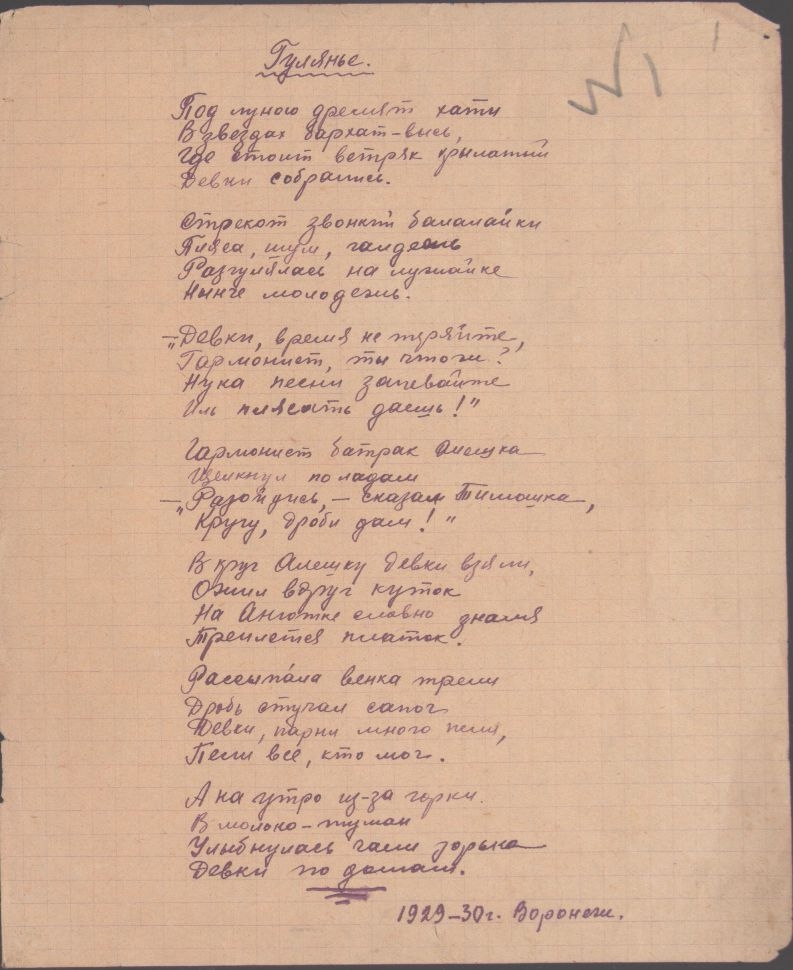 Гулянье.
№1
1
Под луною дремят хаты
В звездах бархат-высь,
Где стоит ветряк крылатый
Девки собрались.
Стрекот звонкий балалайки
Пляса, шум, галдежь
Разгулялась на лужайке
Нынче молодежь.
—„Девки, время не теряйте,
Гармонист, ты чтожи?
Нука песни запевайте
Иль плясать даешь!"
Гармонист батрак Алешка
Щелкнул по ладам
—„Разойдись, — сказал Тимошка,
Кругу, дроби дам!"
В круг Алешку девки взяли,
Ожил вдруг куток
На Анютке словно знамя
Треплется платок.
Рассыпала венка трели
Дробь стучал сапог
Девки, парни много пели,
Пели все, кто мог.
А на утро из-за горки
В молоко-туман
Улыбнулась
зорька
Девки по домам.
1929–30 г. Воронеж.